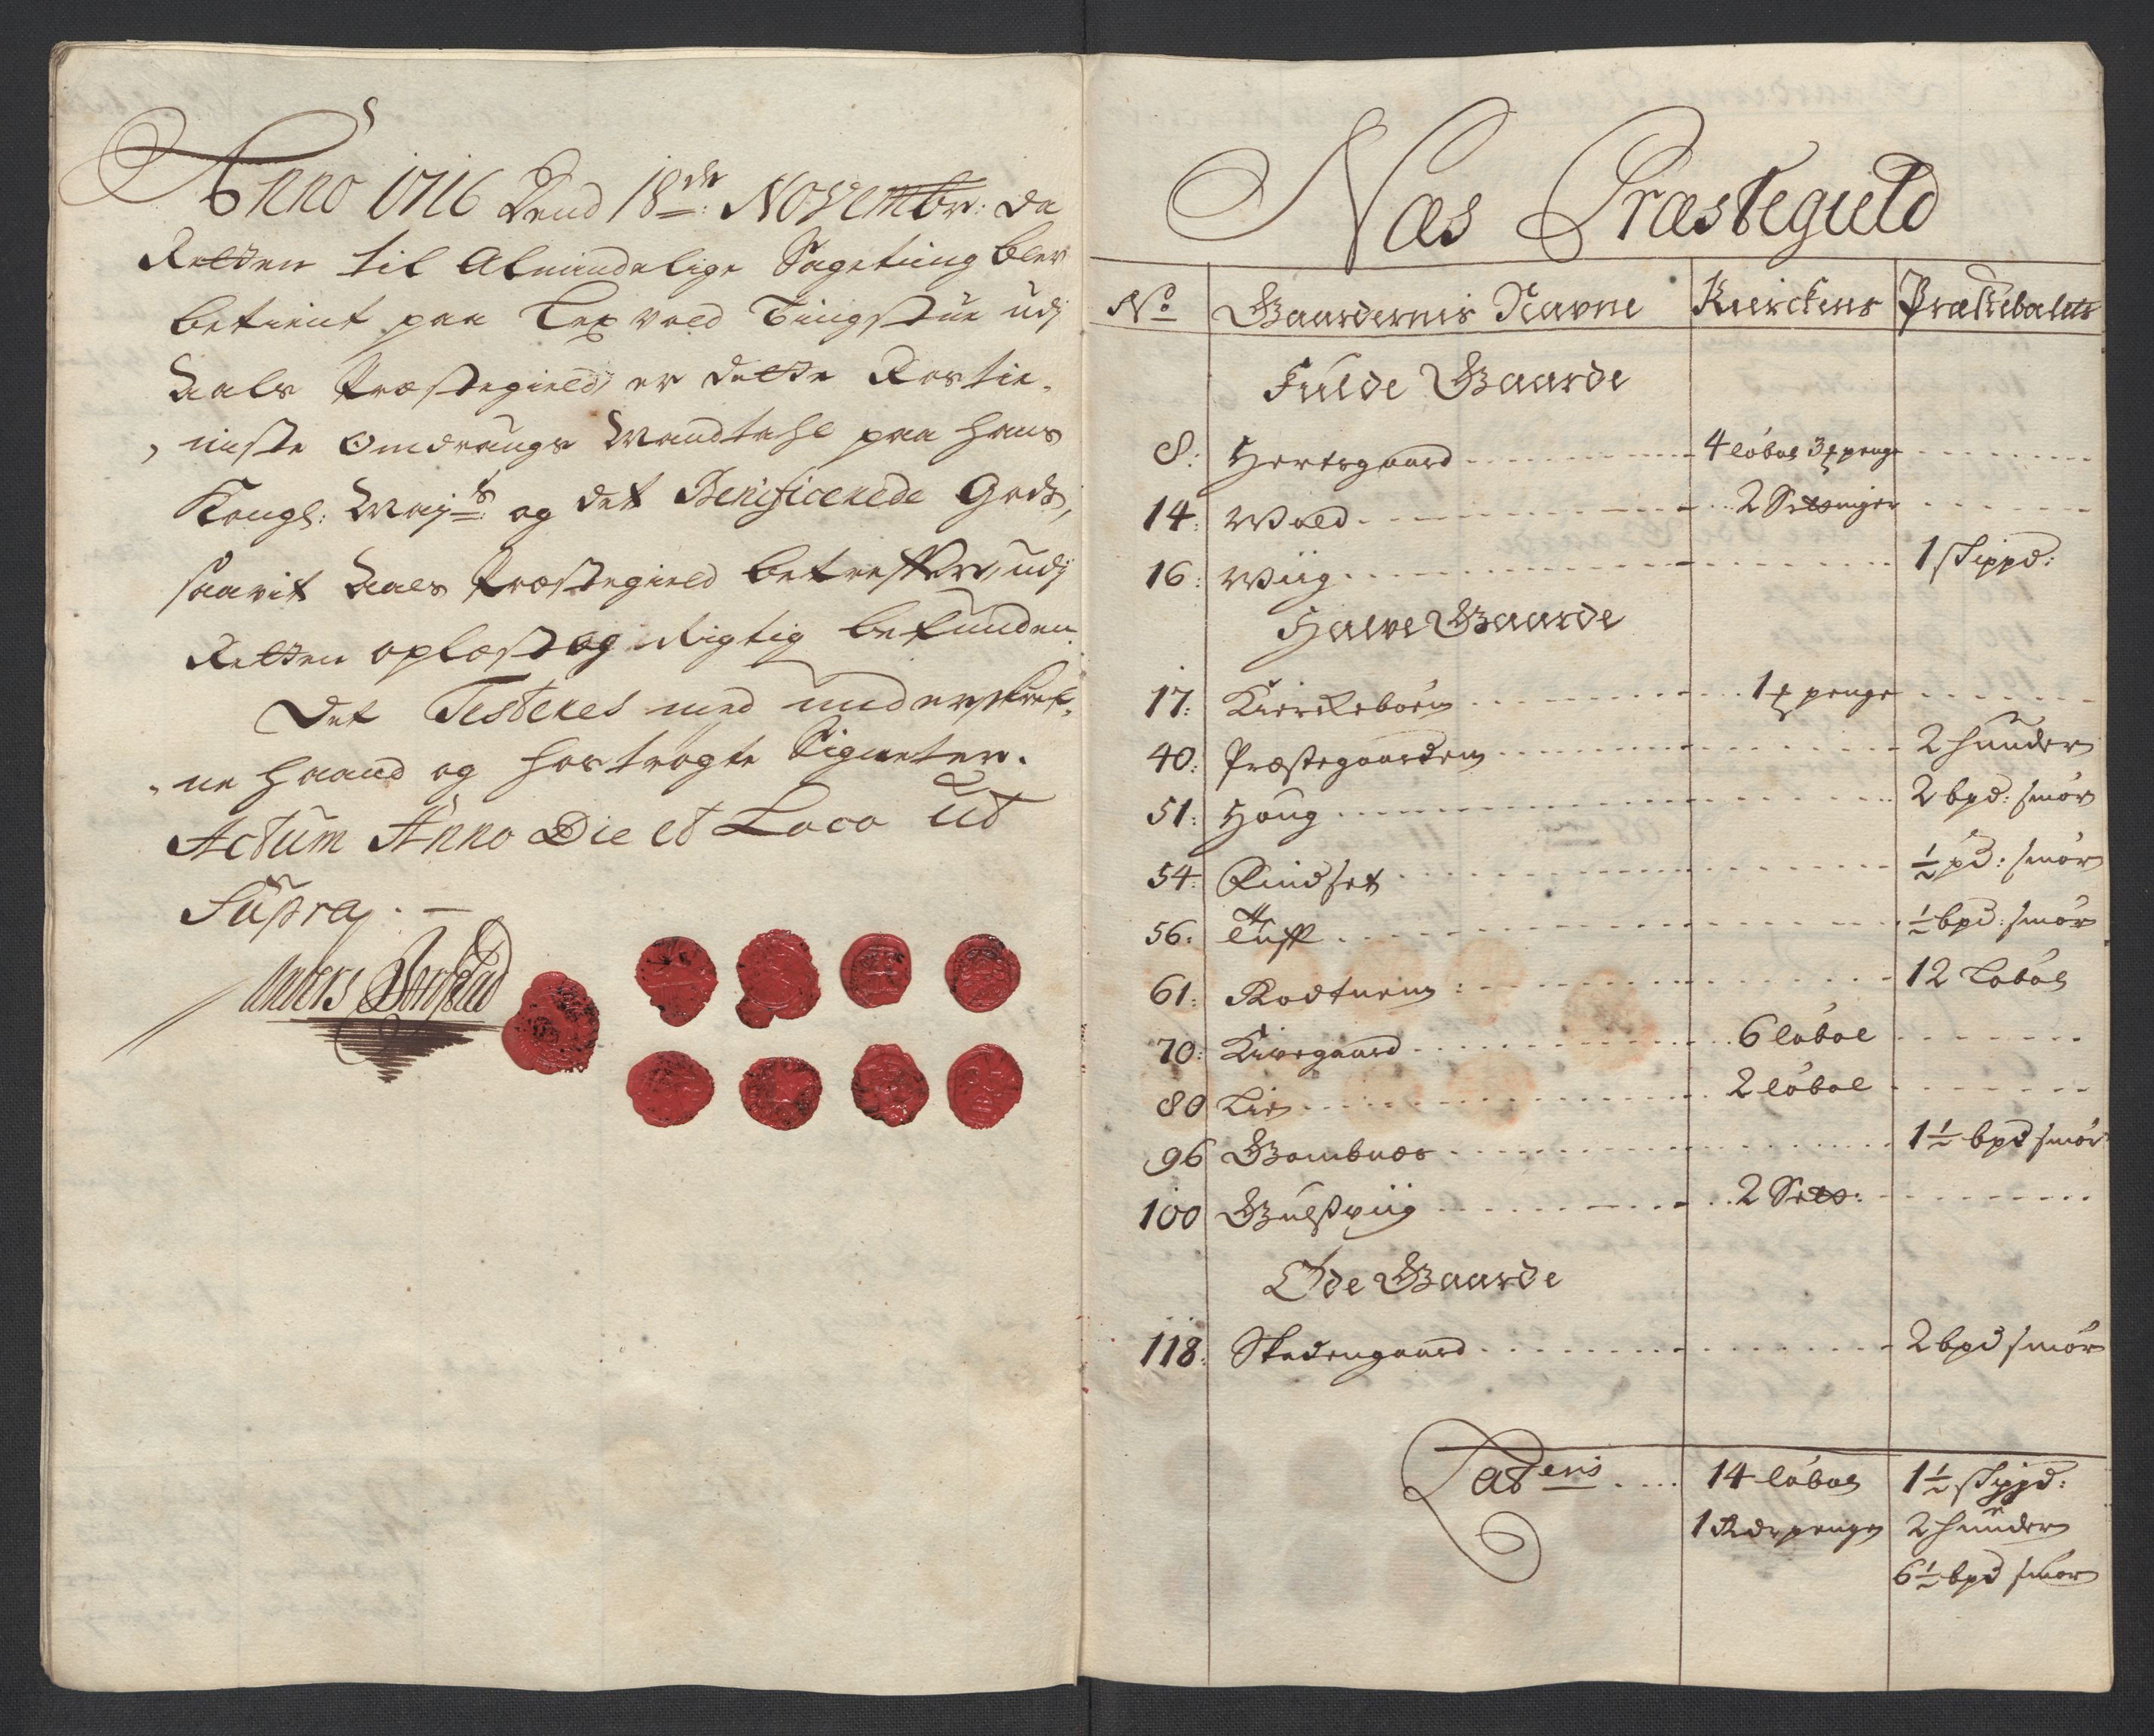 Anno 1716 Dend 18de: Novembr: da
Retten til Almindelige Sageting blev
betient paa Lexvold Tingstue udj
Aals Præstegield, er dette Rostie-
niste Omdrangs Mandtahl paa Hans
Kongl: Mayts og det Benificerede Gods,
saavit Aals Præstegield betreffer, udj
Retten oplæst og Rigtig befunden.
Det Testeres med underskref-
ne Haand og hostrogte Signeter.
Actum Anno Die et Loco ut
Supra.
Anders
Næs Præstegield
No Gaardernis Navne Kierckens Præstebolets
Fulde Gaarde
8: Hertzgaard 4 løbol 3 penge
14: Wold 2 Setninger
16: Wiig 1 skippd:
Halve Gaarde
17: Kierkeboen 1 penge
40: Præstegaarden 2 huuder
51: Houg 2 bpd: smør
54: Rindset ½ pd: smør
56: Tuff ½ bpd: smør
61: Rodtnem 12 Løbol
70: Kiregaard 6 løbol
80 Lie 2 løbol
96 Gombnes 1½ bpd smør
100 Gulsviig 2 Set:
Øde Gaarde
118: Skadengaard 2 bpd smør
Lateris 14 løbol 1½ skippd:
1 Rdr penge 2 huuder
6½ bpd smør